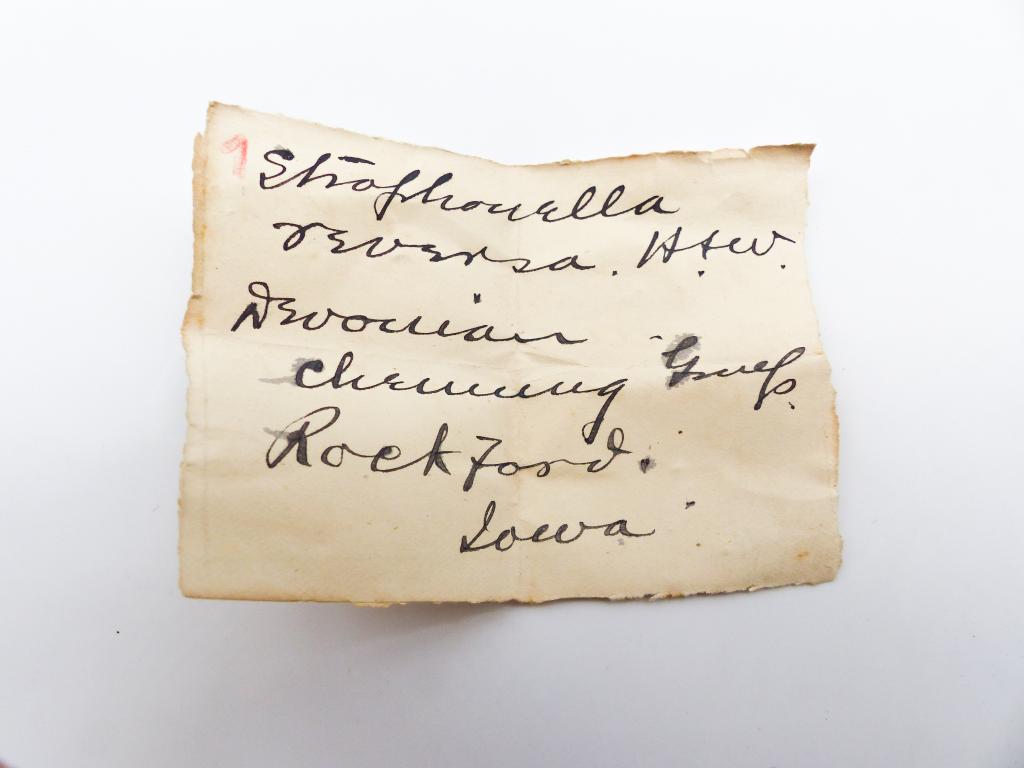 1 Strophonella
reversa. H. & W.
Devonian
Chemung Group.
Rockford.
Iowa